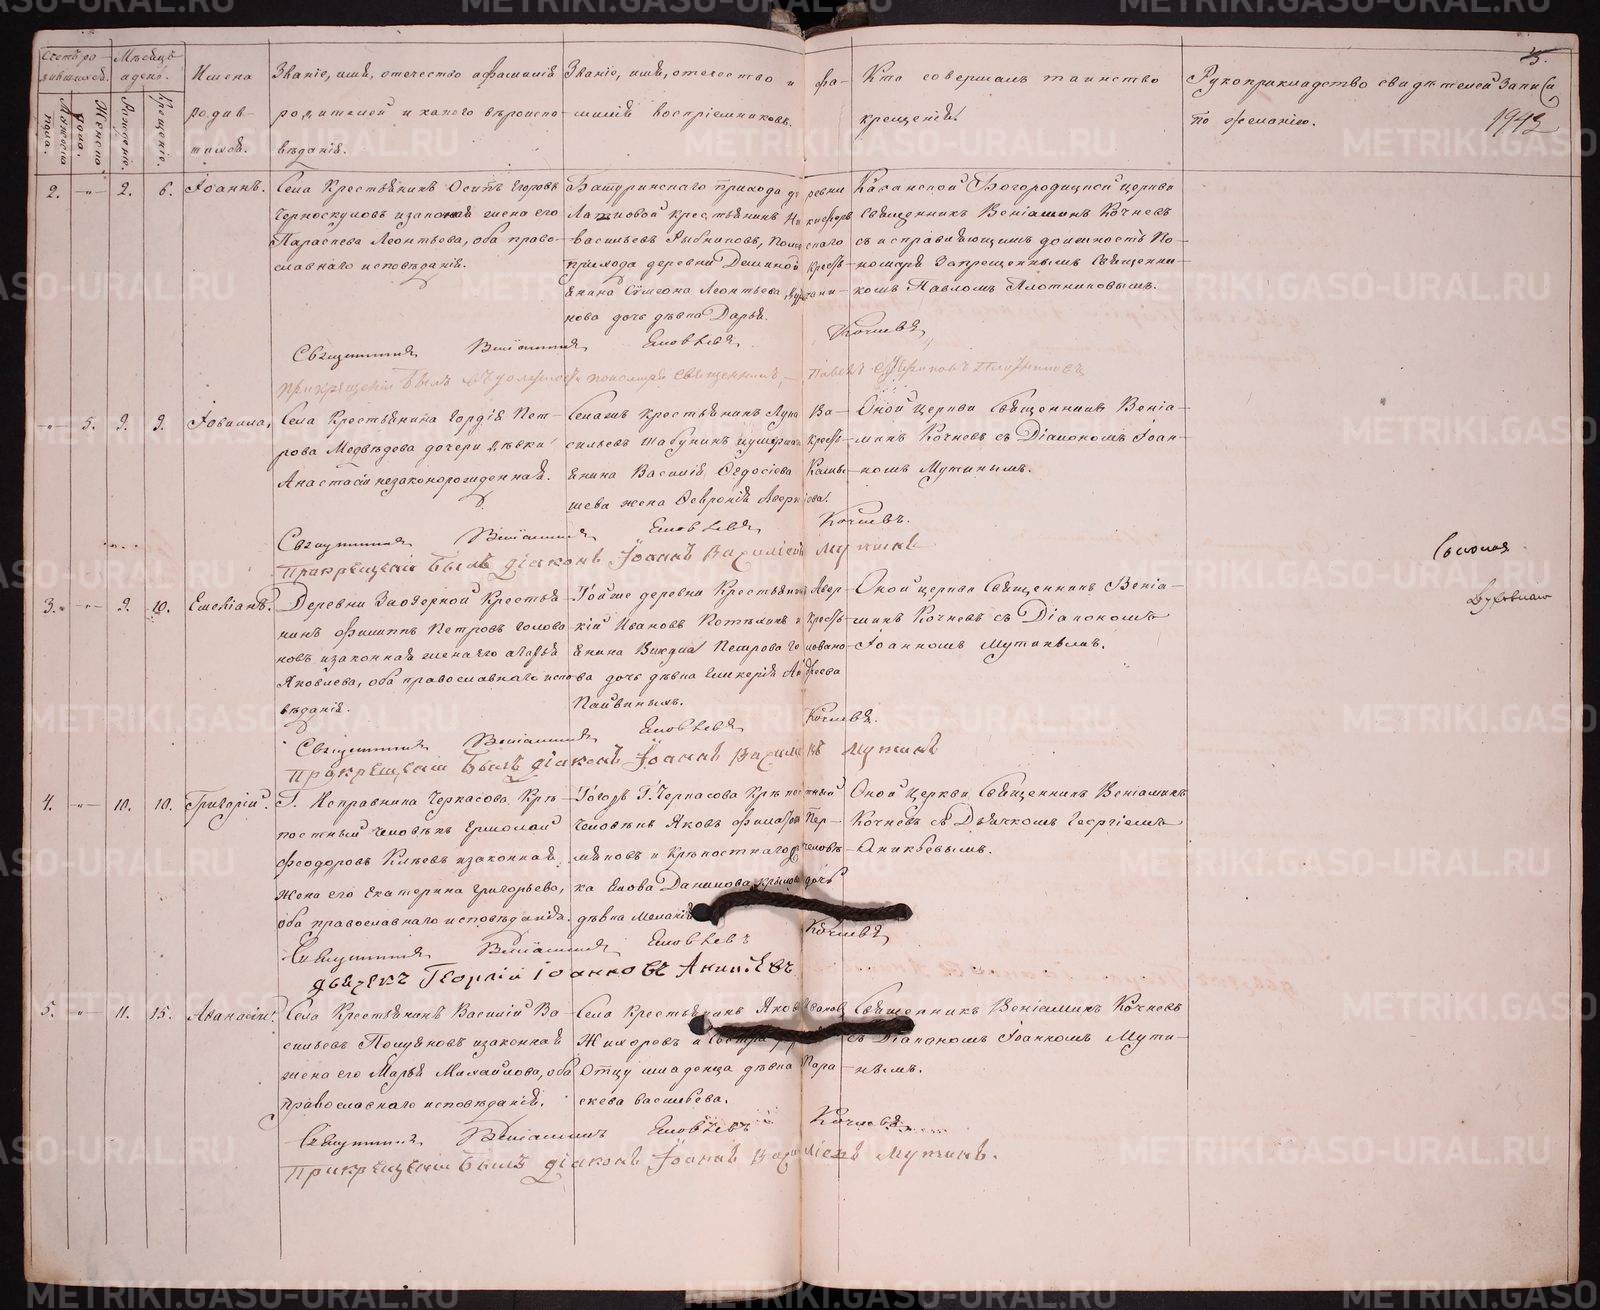 Счетъ ро-
дившихся.
Мужеска
пола.
Женска
пола.
Мѣсяцъ
и день.
Рожденіе.
Крещеніе.
Имена
родив-
шихся.
Званіе, имя, отечество и фамилія
родителей и какого вѣроиспо-
вѣданія.
Званіе, имя, отечество и фа-
милія воспріемниковъ.
Кто совершалъ таинство
крещенія.
Рукоприкладство свидѣтелей записи
по желанію.
2. -"- 2. 6. Іоаннъ.
Села Крестьянинъ Осипъ Егоровъ
Черноскуловъ и законная жена его
Параскева Леонтьева, оба право-
славнаго исповѣданія.
Батуринскаго прихода де ревни
крестьянинъ
Васильевъ Рыбниковъ,
прихода деревни Деминой Кресть-
янина Сѵмеона Леонтьева
нова дочь дѣвка Дарья.
Казанской Богородицкой церкви
Священникъ Веніаминъ Кочневъ
съ исправляющимъ должность По-
номаря Запрещеннымъ Священни-
комъ Павломъ Плотниковымъ.
Священникъ Веніаминъ Іовлевъ Кочневъ
При крещеніи былъ въ должности пономаря священникъ Павелъ Плотниковъ
-"- 5. 9. 9. Іовилла,
Села Крестьянина Гордія Пет-
рова Медвѣдева дочери дѣвки
Анастасіи незаконнорожденная.
Селаже Крестьянинъ Лука Ва-
сильевъ Шабунинъ и умершаго Кресть-
янина Василія Ѳедосіева Камы-
шева жена Ѳевронія Аверкіева.
Оной церкви Священникъ Веніа-
минъ Кочневъ съ Діакономъ Іоан-
номъ Мутинымъ.
Священникъ Веніаминъ Іовлевъ Кочневъ.
При крещеніи былъ діаконъ Іоаннъ Василіевъ Мутинъ
3. -"- 9. 10. Емеліанъ.
Деревни Заозерной Крестья-
нинъ Филиппъ Петровъ Голова-
новъ и законная жена его Агафья
Яковлева, оба православнаго испо-
вѣданія.
Той же деревни Крестьянинъ Авер-
кій Ивановъ Потѣхинъ и Кресть-
янина Викула Петрова Головано-
ва дочь дѣвка Гликерія
Оной церкви Священникъ Веніа-
минъ Кочневъ съ Діакономъ
Іоанномъ Мутинымъ.
Священникъ Веніаминъ Іовлевъ Кочневъ.
При крещеніи былъ діаконъ Іоаннъ Василіевъ Мутинъ
4. -"- 10. 10. Григорій.
Г. Исправника Черкасова Крѣ-
постный человѣкъ Ермолай
Феодоровъ Княевъ и законная
жена его Екатерина Григорьева,
оба православнаго исповѣданія.
Тогожъ Г. Черкасова Крѣпостный
человѣкъ Яковъ Филатовъ Пер-
мяковъ и Крѣпостнаго человѣ-
ка Іова Данилова Крылова дочь
дѣвка Меланія.
Оной Церкви Священникъ Веніаминъ
Кочневъ съ Дьячкомъ Георгіемъ
Аникѣевымъ.
Священникъ Веніаминъ Іовлевъ Кочневъ
дьячекъ Георгій Іоанновъ Аникіевъ
5. -"- 11. 15. Аѳанасій.
Села Крестьянинъ Василій Ва-
сильевъ Полуяновъ и законная
жена его Марья Михайлова, оба
православнаго исповѣданія.
Села Крестьянинъ Яковъ Ивановъ
Жихоревъ и сестра
Отцу младенца дѣвка Пара-
скева Васильева.
Священникъ Веніаминъ Кочневъ
съ Діакономъ Іоанномъ Мути-
нымъ.
Священникъ Веніаминъ Іовлевъ Кочневъ
При крещеніи былъ діаконъ Іоаннъ Василіевъ Мутинъ.
METRIKI.GASO-URAL.RU